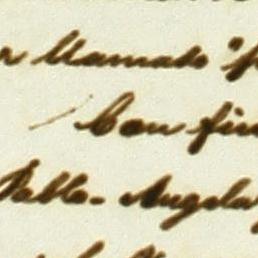 r llamado "p
Con fin
Pablo- Angela